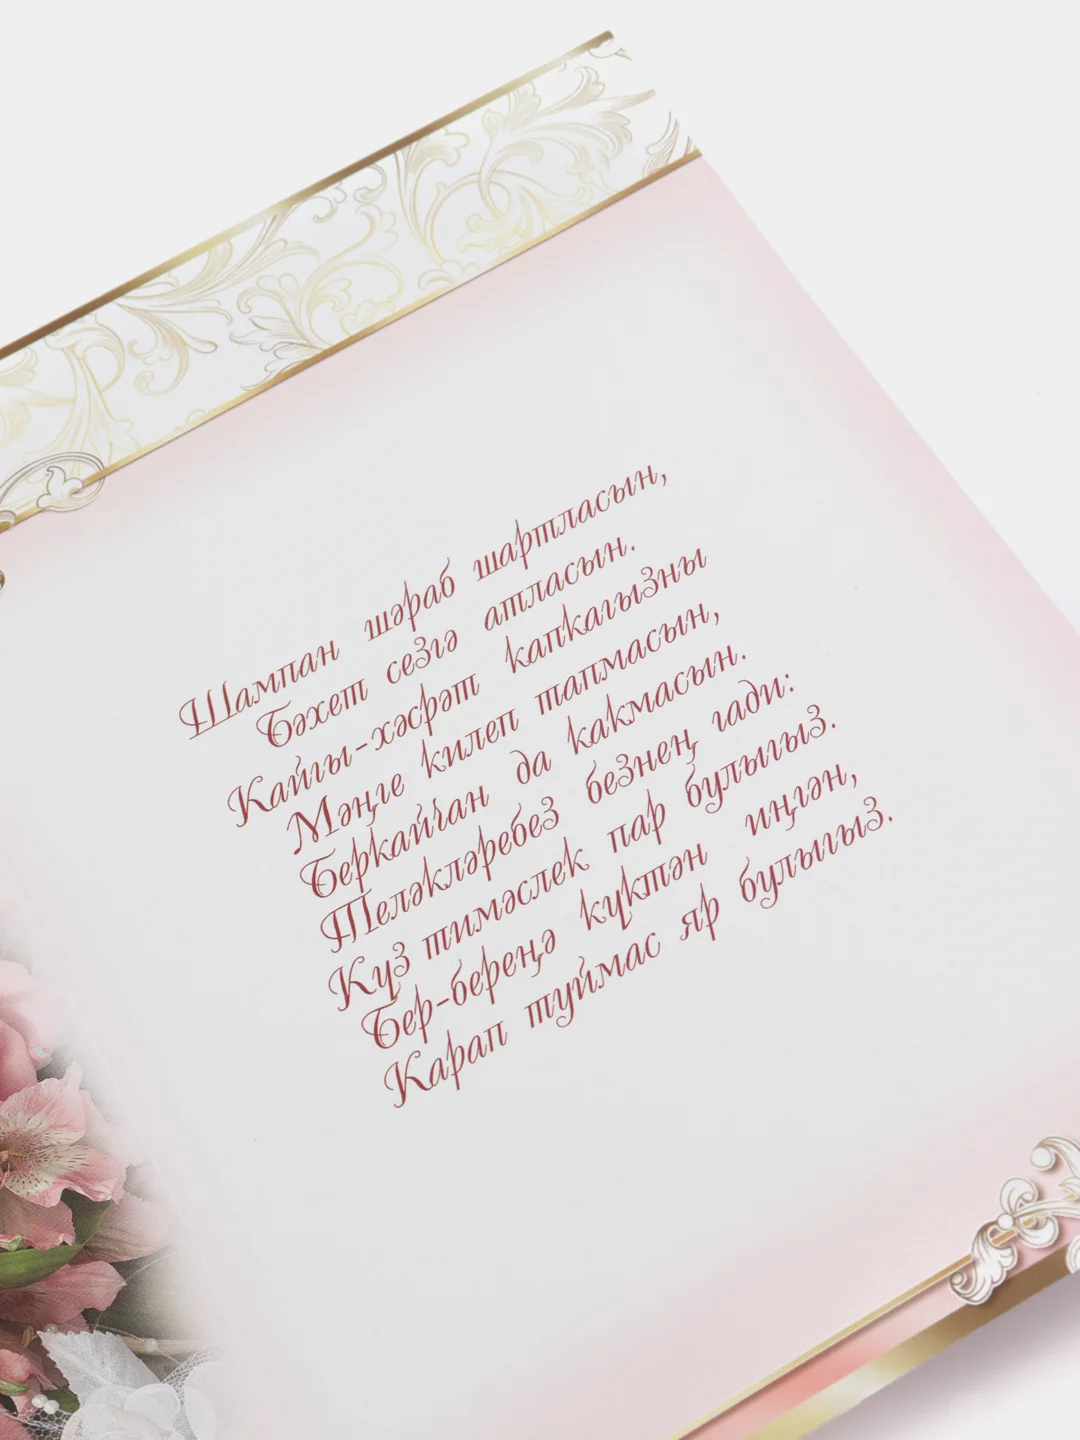 Шампан шәраб шартласын,
Бәхет сезгә атласын.
Кайгы-хәсрәт капкагызны
Мәңге килеп тапмасын,
Беркайчан да какмасын.
Теләкләребез безнең гади:
Күз тимәслек пар булыгыз.
Бер-береңә күктән иңгән,
Карап туймас яр булыгыз.